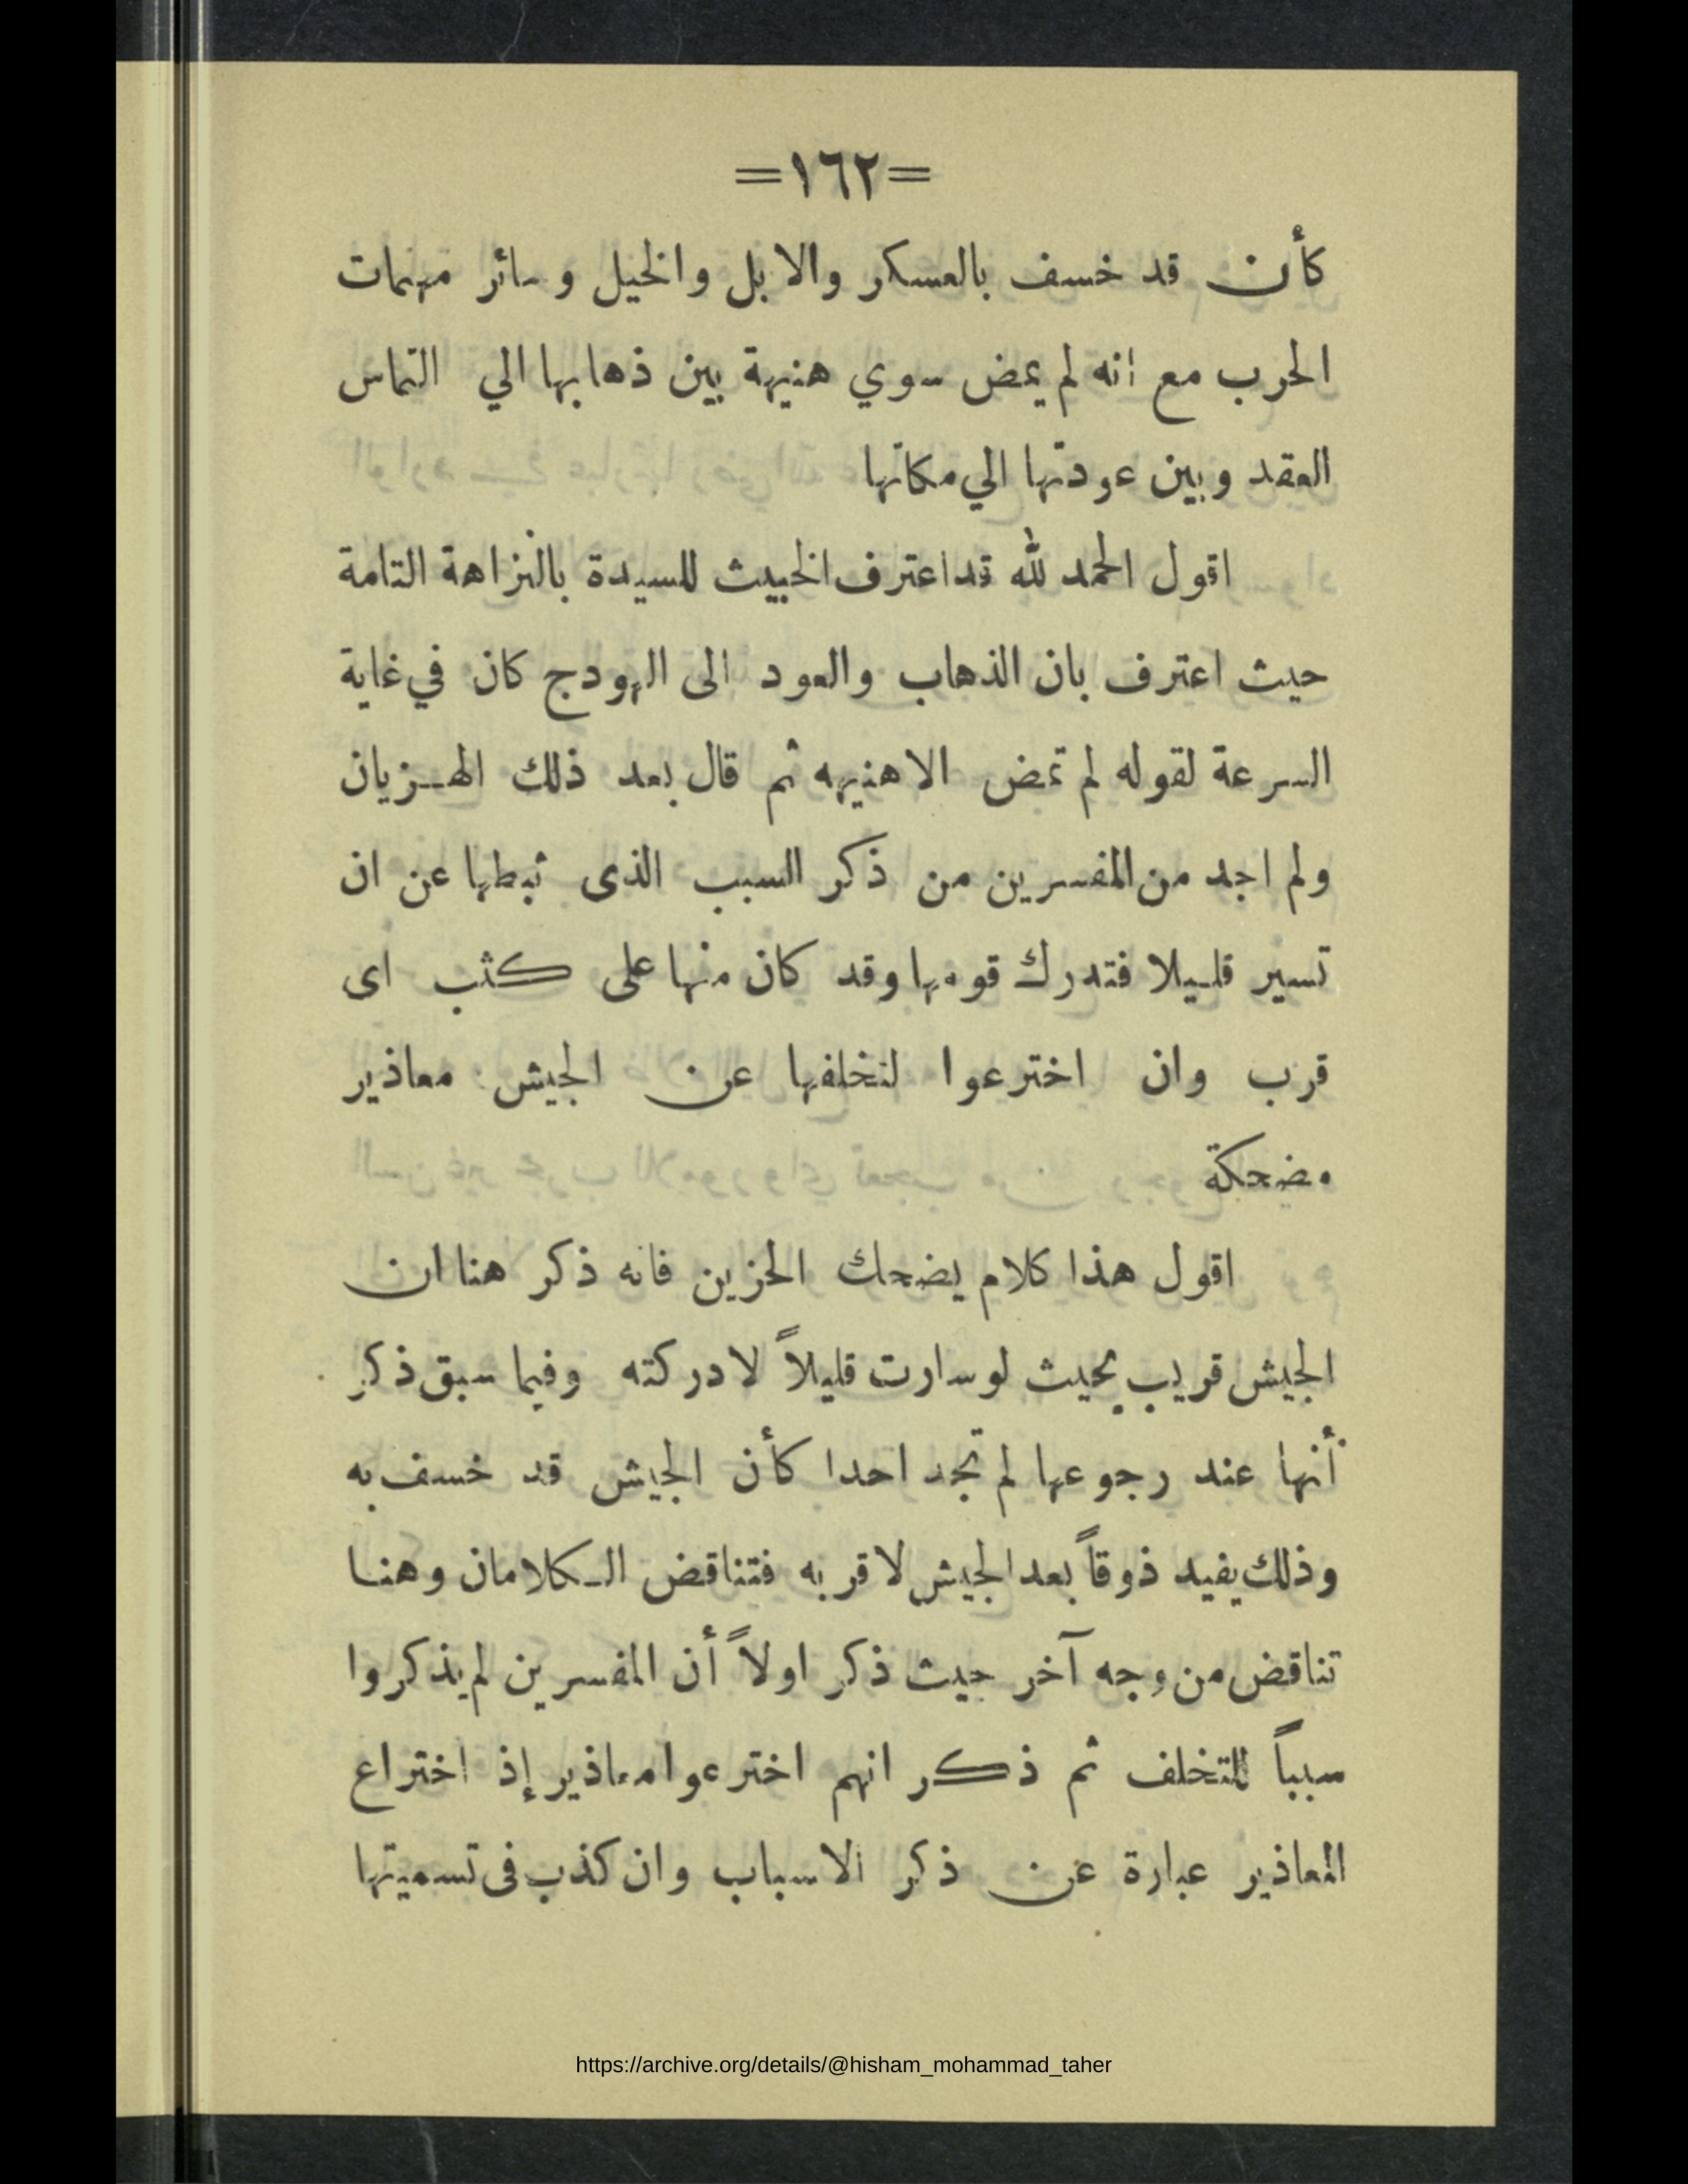 =١٦٢=
كأن قد خسف بالعسكر والابل والخيل وسائر مهمات
الحرب مع انه لم يمض سوي هنيهة بين ذهابها الي التماس
العقد وبين عودتها الي مكانها
اقول الحمد لله قد اعترف الخبيث للسيدة بالنزاهة التامة
حيث اعترف بان الذهاب والعود الى الهودج كان في غاية
السرعة لقوله لم تمض الا هنيهه ثم قال بعد ذلك الهزيان
ولم اجد من المفسرين من ذكر السبب الذى ثبطها عن ان
تسير قليلا فتدرك قومها وقد كان منها على كثب اى
قرب وان اخترعوا لتخلفها عن الجيش معاذير
مضحكة
اقول هذا كلام يضحك الحزين فانه ذكر هنا ان
الجيش قريب بحيث لو سارت قليلاً لادركته وفيما سبق ذكر
أنها عند رجوعها لم تجد احدا كأن الجيش قد خسف به
وذلك يفيد ذوقاً بعد الجيش لا قربه فتناقض الكلامان وهنا
تناقض من وجه آخر حيث ذكر اولاً أن المفسرين لم يذكروا
سبباً للتخلف ثم ذكر انهم اخترعوا معاذير إذ اختراع
المعاذير عبارة عن ذكر الاسباب وان كذب فى تسميتها
https://archive.org/details/@hisham_mohammad_taher